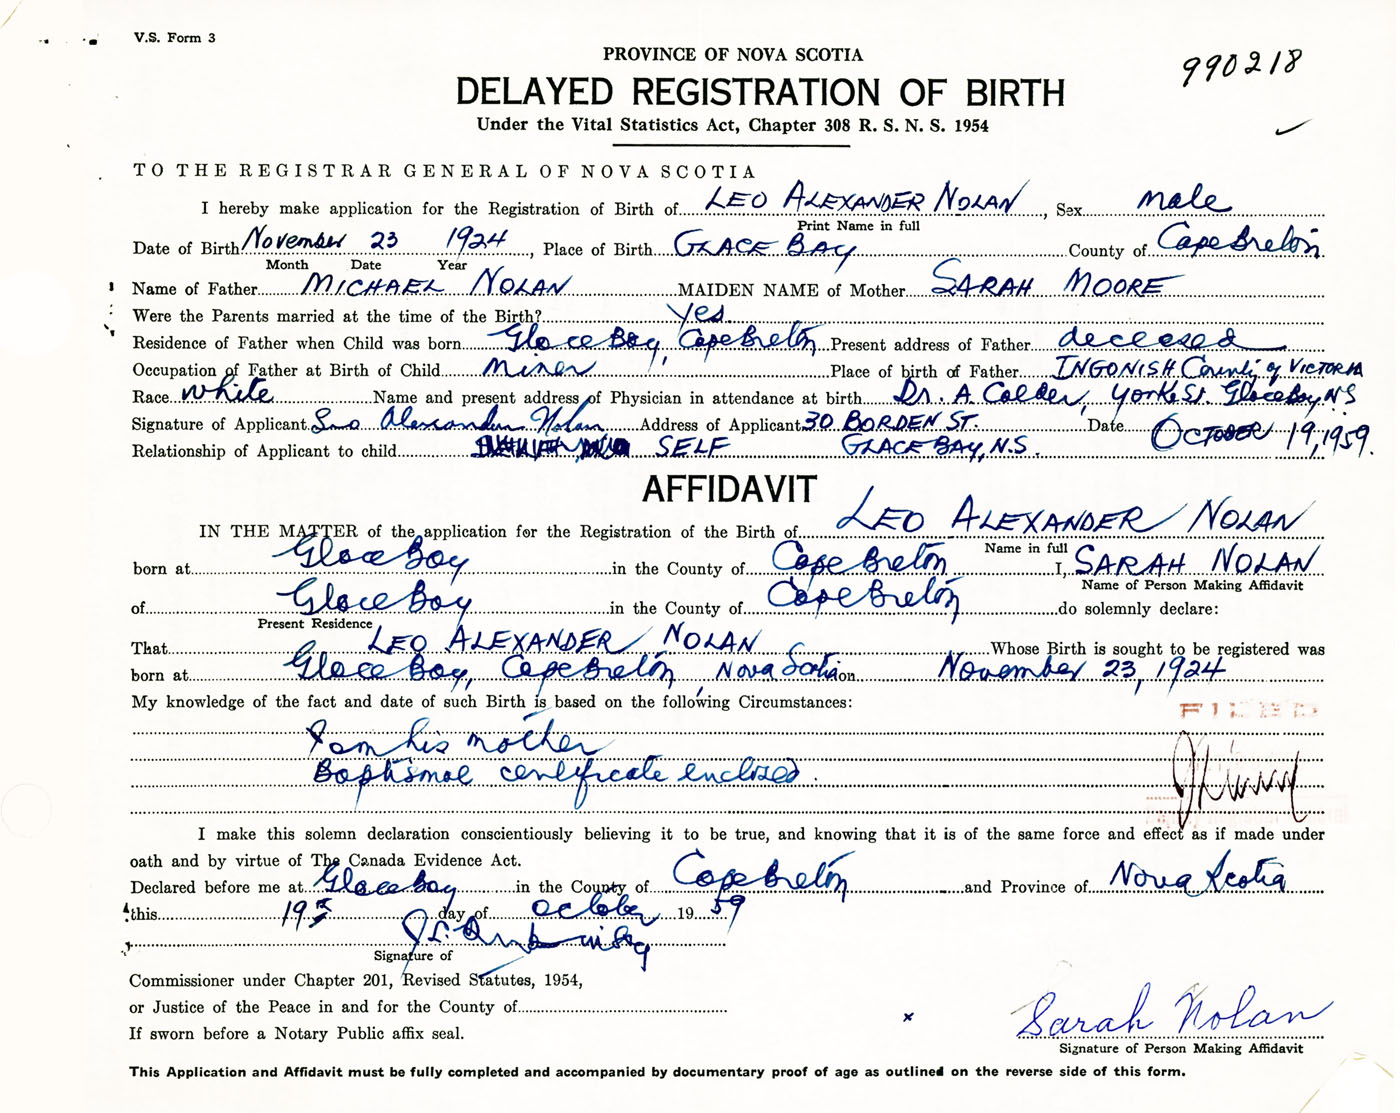 V.S. Form 3
PROVINCE OF NOVA SCOTIA
990218
DELAYED REGISTRATION OF BIRTH
Under the Vital Statistics Act, Chapter 308 R. S. N. S. 1954
TO THE REGISTRAR GENERAL OF NOVA SCOTIA
I hereby make application for the Registration of Birth of LEO ALEXANDER NOLAN, Sex male
Print Name in full
Date of Birth November 23 1924, Place of Birth GLACE BAY County of Cape Breton
Month Date Year
Name of Father MICHAEL NOLAN MAIDEN NAME of Mother SARAH MOORE
Were the Parents married at the time of the Birth? yes
Residence of Father when Child was born Glace Bay, Cape Breton Present address of Father deceased
Occupation of Father at Birth of Child Miner Place of birth of Father INGONISH County of VICTORIA
Race white Name and present address of Physician in attendance at birth Dr. A. Calder, York St. Glace Bay NS
Signature of Applicant Alexander Nolan Address of Applicant 30 BORDEN ST. Date OCTOBER 19, 1959.
Relationship of Applicant to child SELF GLACE BAY, N.S.
AFFIDAVIT
IN THE MATTER of the application for the Registration of the Birth of LEO ALEXANDER NOLAN
Name in full
born at Glace Bay in the County of Cape Breton I, SARAH NOLAN
Name of Person Making Affidavit
of Glace Bay in the County of Cape Breton do solemnly declare:
Present Residence
That LEO ALEXANDER NOLAN Whose Birth is sought to be registered was
born at Glace Bay, Cape Breton, Nova Scotia on November 23, 1924
My knowledge of the fact and date of such Birth is based on the following Circumstances:
FILED
I am his mother
Baptismal certificate enclosed.
I make this solemn declaration conscientiously believing it to be true, and knowing that it is of the same force and effect as if made under
oath and by virtue of The Canada Evidence Act.
Declared before me at Glace Bay in the County of Cape Breton and Province of Nova Scotia
this day of October 19 59
Signature of
Commissioner under Chapter 201, Revised Statutes, 1954,
or Justice of the Peace in and for the County of
If sworn before a Notary Public affix seal.
x
Sarah Nolan
Signature of Person Making Affidavit
This Application and Affidavit must be fully completed and accompanied by documentary proof of age as outlined on the reverse side of this form.